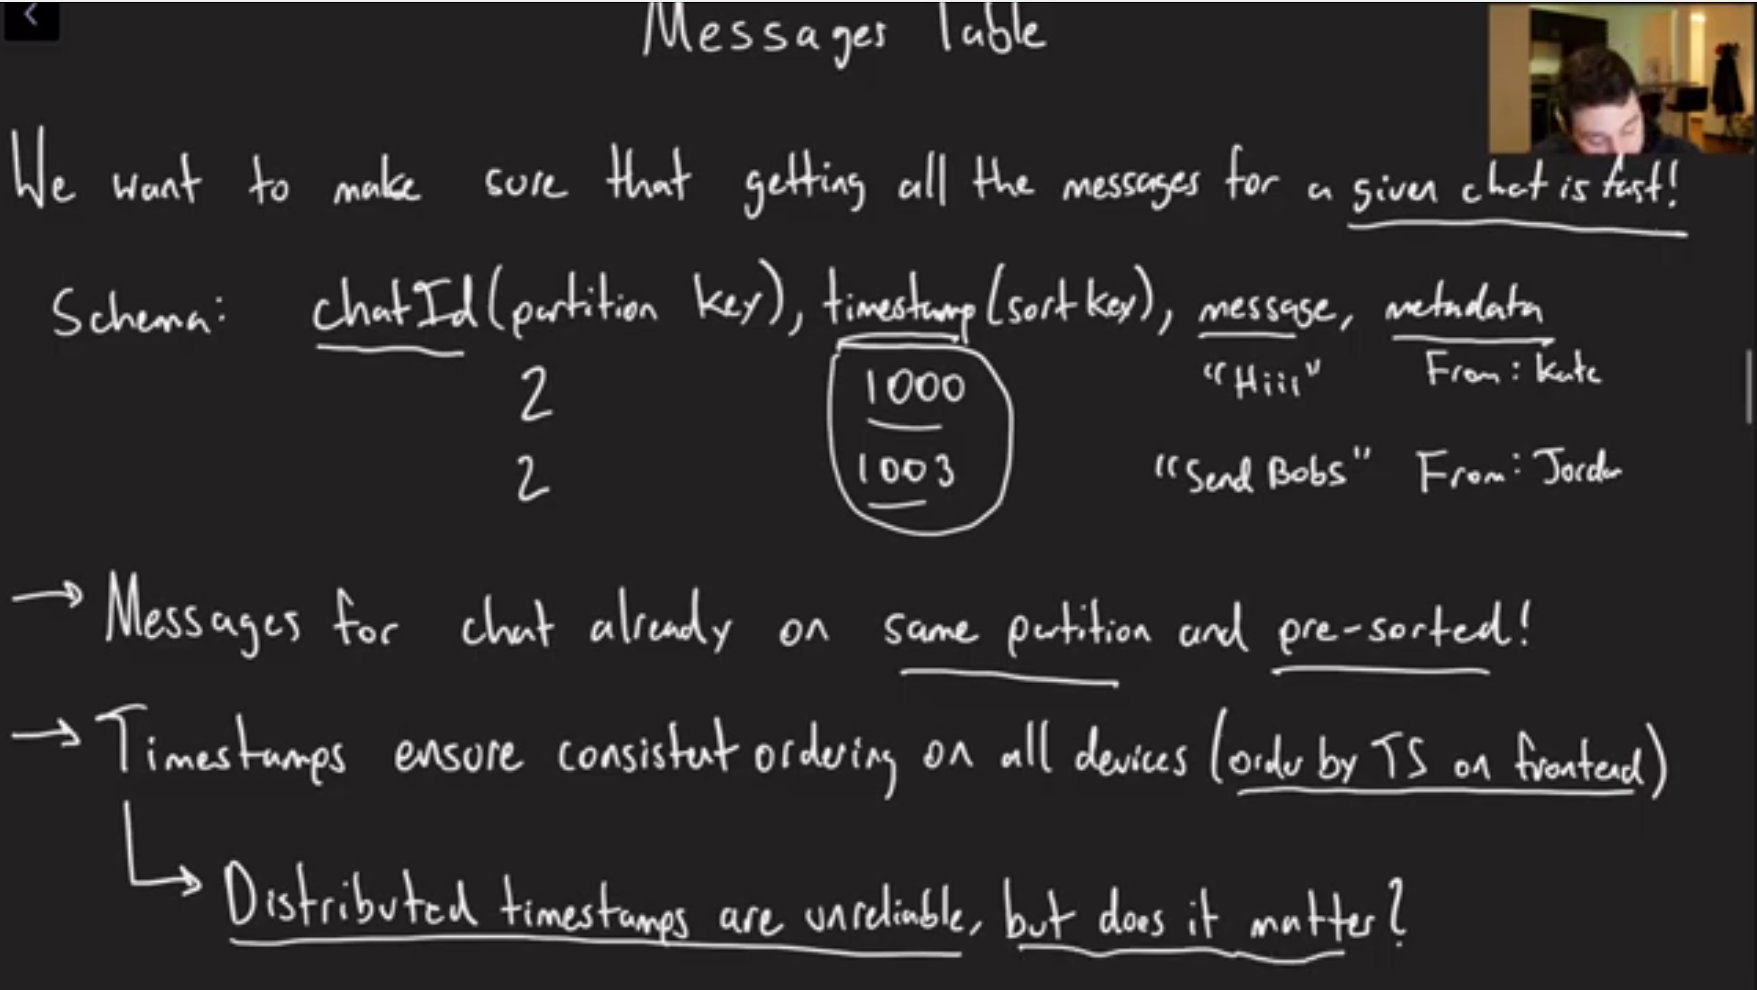 Messages Table
We want to make sure that getting all the messages for a given chat is fast!
Schema: chatId (partition key), timestamp (sort key), message, metadata
2 1000 "Hiii" From: Kate
2 1003 "Send Bobs" From: Jordan
→ Messages for chat already on same partition and pre-sorted!
→ Timestamps ensure consistent ordering on all devices (order by TS on frontend)
↳ Distributed timestamps are unreliable, but does it matter?